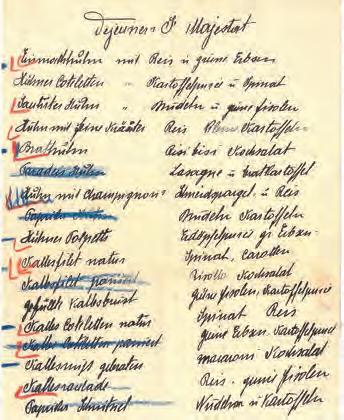 Dejeuners Sr Majestät
Einmachhuhn mit Reis u grüne Erbsen
Hühner Cotletten " Kartoffelpurée u Spinat
Sautirtes Huhn " Nudeln u grüne Fisolen
Huhn mit feine Kräuter Reis Kartoffeln
Brathuhn Risi bisi Kochsalat
Paradeis Huhn Lasagne u Bratkartoffel
Huhn mit Champignons Schneidspargel u Reis
Paprika Huhn Nudeln Kartoffeln
Hühner Polpette Erdäpfelpurée gr Erbsen
Kalbsfilet natur Spinat, Carotten
Kalbsfilet paniert Risotto Kochsalat
gefüllte Kalbsbrust Grüne Fisolen, Kartoffelpurée
Kalbs Cotletten natur Spinat Reis
Kalbs Cotletten paniert grüne Erbsen Kartoffelpurée
Kalbsnuss gebraten macaroni Kochsalat
Kalbsroulade Reis grüne Fisolen
Paprika Schnitzel Nudeln u Kartoffeln